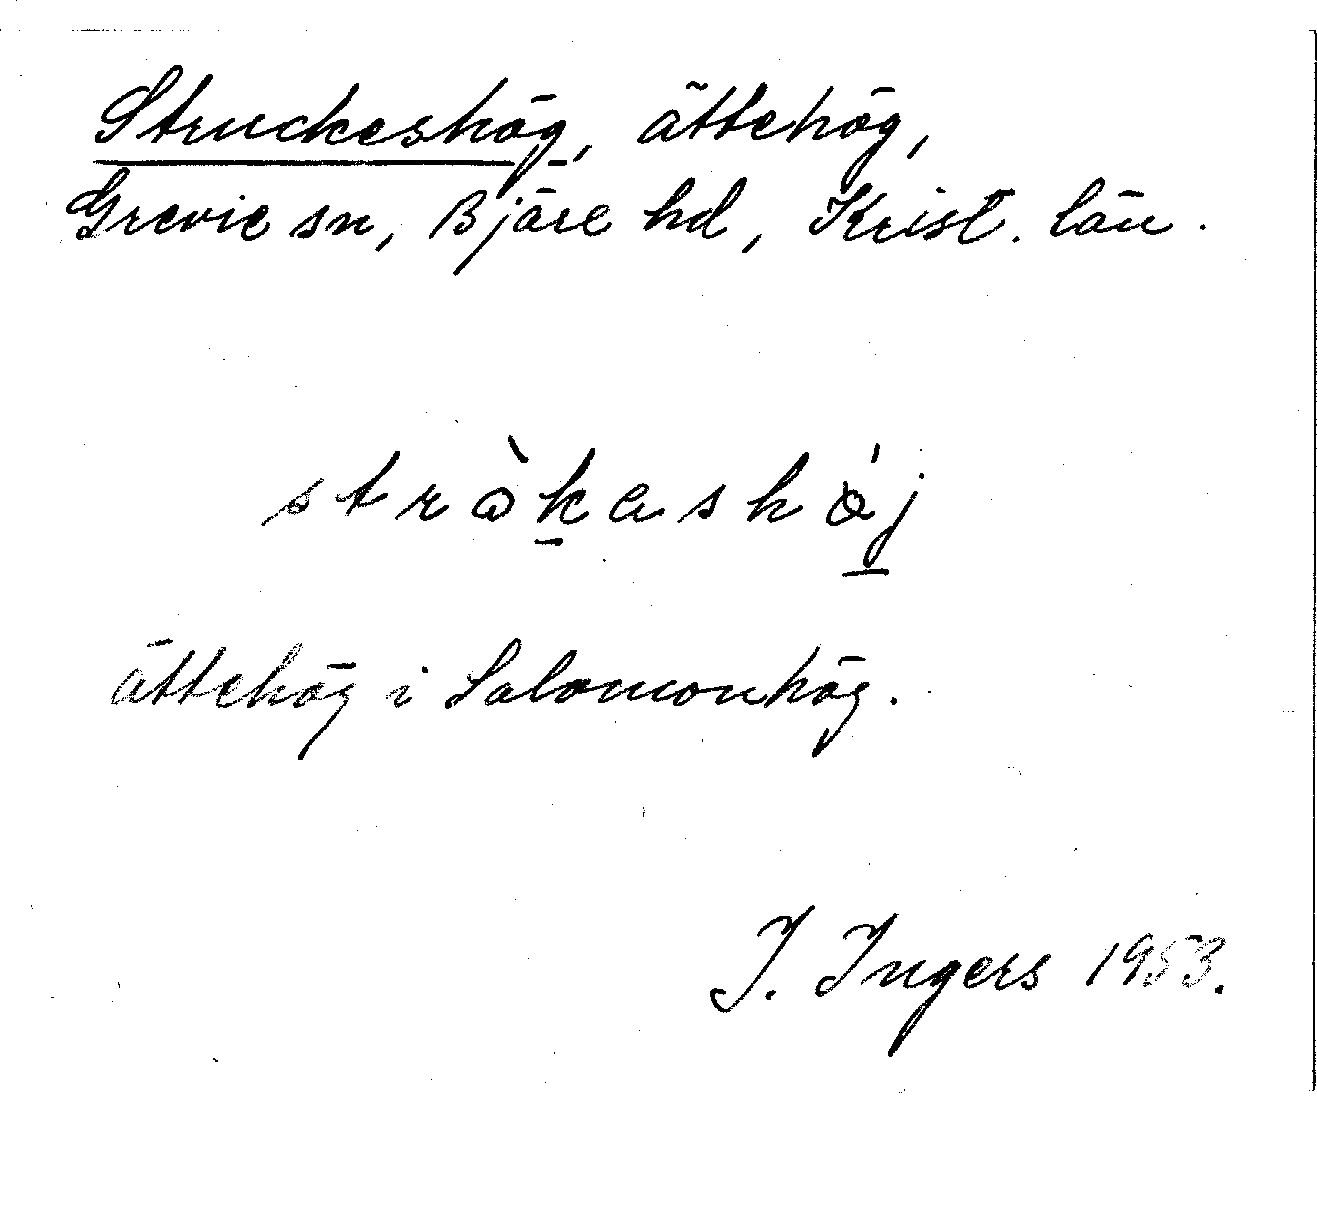 Struckeshög, ättehög,
Grevie sn, Bjäre hd, Krist. län.
stròkashǿj
ättehög i Salomonhög.
I. Ingers 1953.